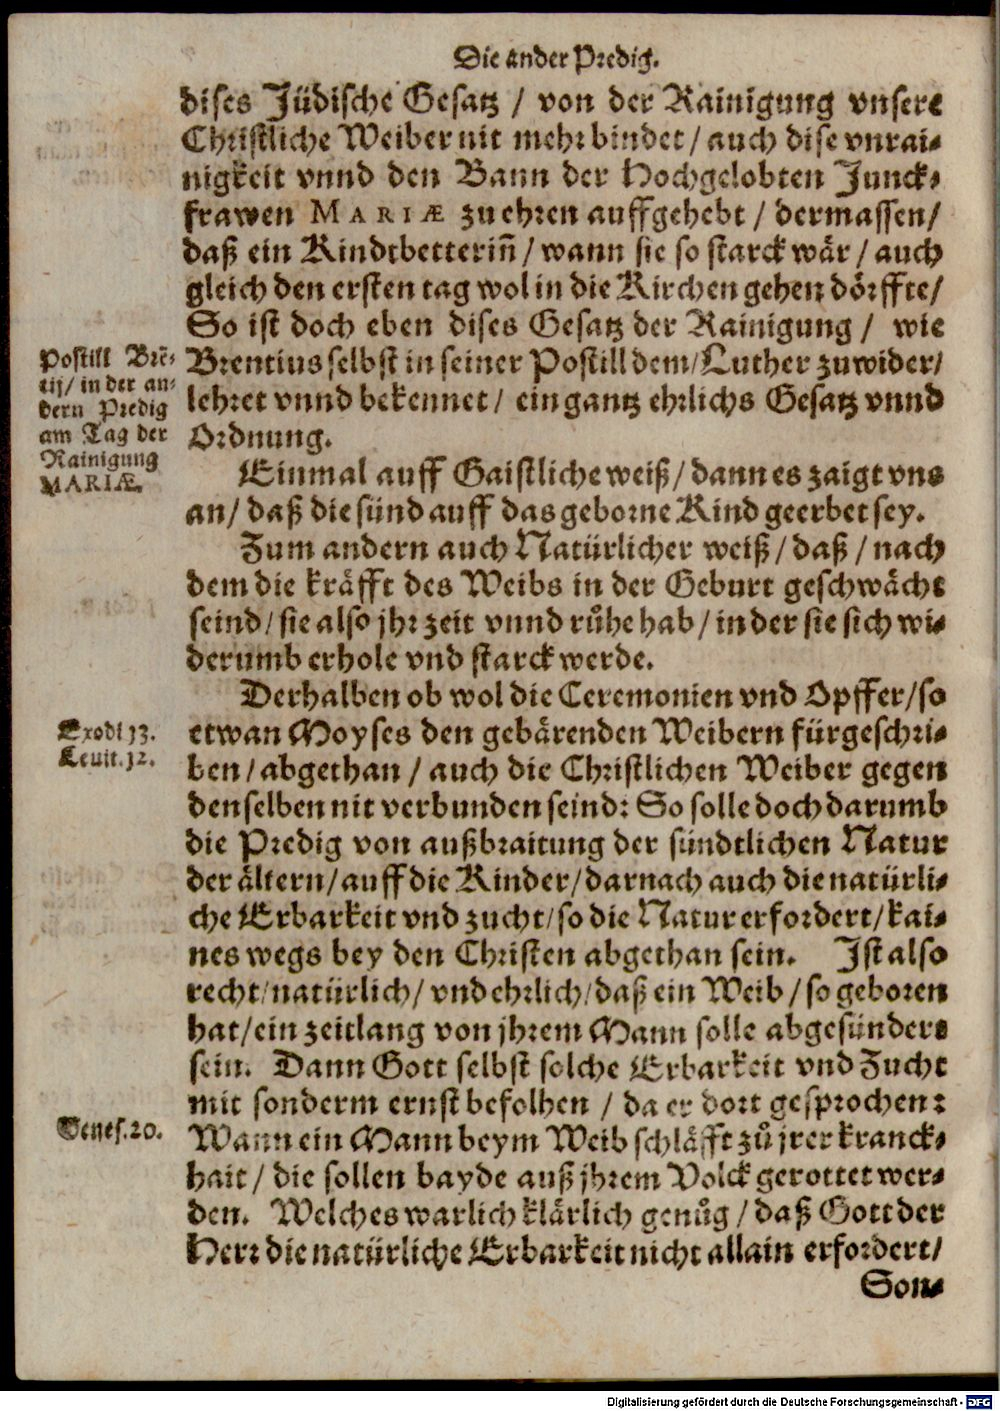 Die ander Predig.
dises Jüdische Gesatz / von der Rainigung vnsere
Christliche Weiber nit mehr bindet / auch dise vnrai-
nigkeit vnnd den Bann der Hochgelobten Junck-
frawen MARIÆ zu ehren auffgehebt / dermassen /
daß ein Kindtbetterin̄ / wann sie so starck wär / auch
gleich den ersten tag wol in die Kirchen gehen dörffte /
So ist doch eben dises Gesatz der Rainigung / wie
Brentius selbst in seiner Postill dem / Luther zuwider /
lehret vnnd bekennet / ein gantz ehrlichs Gesatz vnnd
Ordnung.
Postill Brē-
tij / in der an-
dern Predig
am Tag der
Rainigung
MARIÆ.
Einmal auff Gaistliche weiß / dann es zaigt vns
an / daß die sünd auff das geborne Kind geerbet sey.
Zum andern auch Natürlicher weiß / daß / nach
dem die kräfft des Weibs in der Geburt geschwächt
seind / sie also jhr zeit vnnd růhe hab / in der sie sich wi-
derumb erhole vnd starck werde.
Derhalben ob wol die Ceremonien vnd Opffer / so
etwan Moyses den gebärenden Weibern fürgeschri-
ben / abgethan / auch die Christlichen Weiber gegen
denselben nit verbunden seind: So solle doch darumb
die Predig von außbraitung der sündtlichen Natur
der ältern / auff die Kinder / darnach auch die natürli-
che Erbarkeit vnd zucht / so die Natur erfordert / kai-
nes wegs bey den Christen abgethan sein. Ist also
recht / natürlich / vnd ehrlich / daß ein Weib / so geboren
hat / ein zeitlang von jhrem Mann solle abgesündert
sein. Dann Gott selbst solche Erbarkeit vnd Zucht
mit sonderm ernst befolhen / da er dort gesprochen:
Wann ein Mann beym Weib schläfft zů jrer kranck-
hait / die sollen bayde auß jhrem Volck gerottet wer-
den. Welches warlich klärlich genůg / daß Gott der
Herr die natürliche Erbarkeit nicht allain erfordert /
Exodi 13.
Leuit. 12.
Genes. 20.
Son-
Digitalisierung gefördert durch die Deutsche Forschungsgemeinschaft - DFG